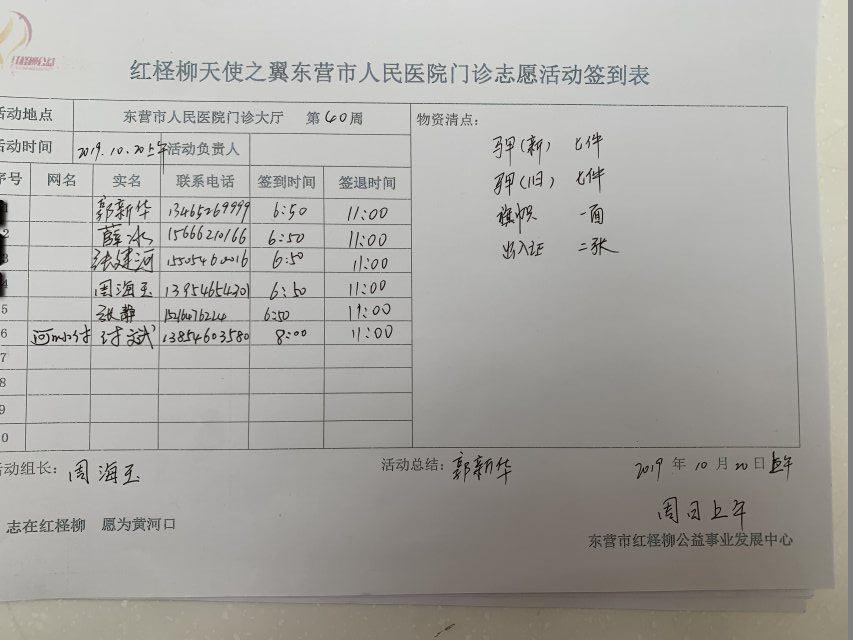 红柽柳天使之翼东营市人民医院门诊志愿活动签到表
活动地点 东营市人民医院门诊大厅 第60周 物资清点:
活动时间 2019.10.20上午 活动负责人
序号 网名 实名 联系电话 签到时间 签退时间
郭新华 13465269999 6:50 11:00
2 薛冰 15666210166 6:50 11:00
3 张建河 15505460016 6:50 11:00
周海玉 13954654301 6:50 11:00
5 张静 15216476224 6:50 11:00
6 付斌 13854603580 8:00 11:00
7
8
9
0
(新) 七件
(旧) 七件
旗帜 一面
出入证 二张
活动组长: 周海玉 活动总结: 郭新华 2019 年 10 月 20 日 上午
周日上午
志在红柽柳 愿为黄河口
东营市红柽柳公益事业发展中心